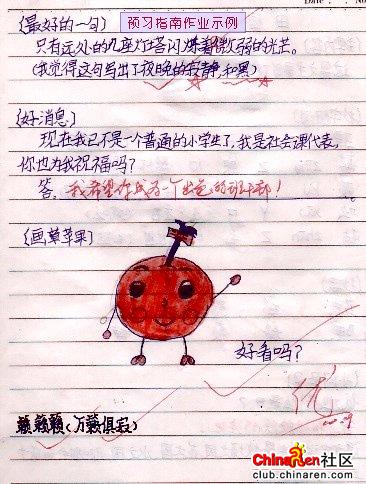 Date:
预习指南作业示例
〈最好的一句〉
只有远处的几座灯塔闪烁着微弱的光芒。
(我觉得这句写出了夜晚的寂静,和黑)
〈好消息〉
现在我已不是一个普通的小学生了,我是社会课代表,
你也为我祝福吗?
答:我希望你成为一个出色的班干部!
〈画草苹果〉
好看吗?
优
籁籁籁(万籁俱寂)
ChinaRen社区
club.chinaren.com